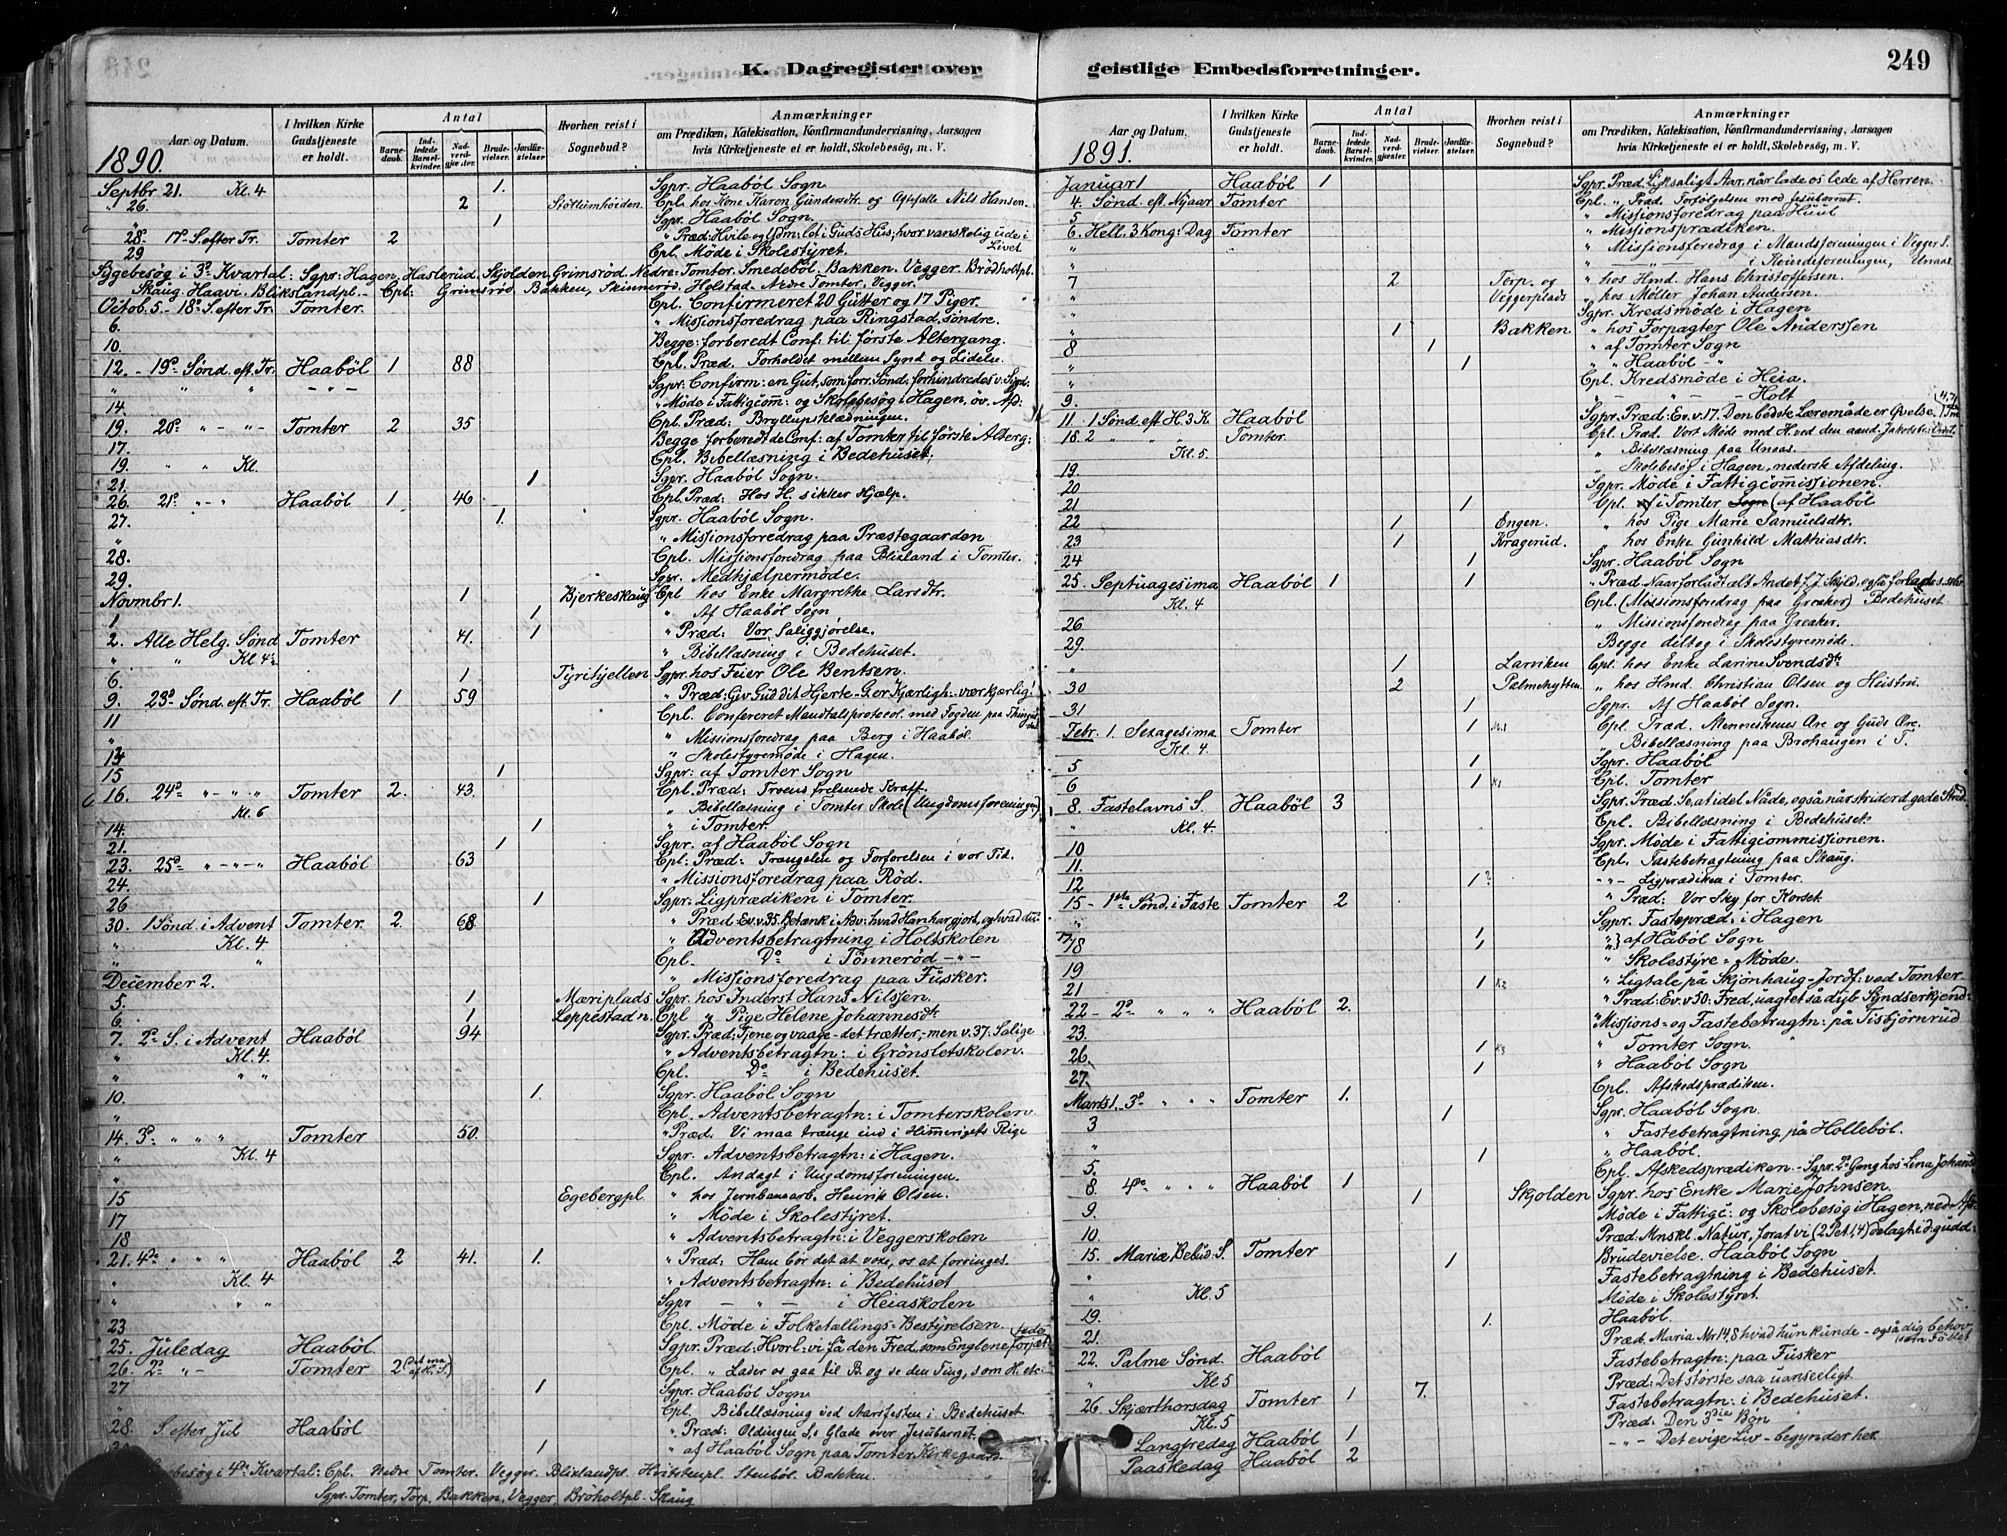 249
K. Dagregister over geistlige Embedsforretninger.
Aar og Datum.
I hvilken Kirke Gudstjeneste er holdt.
Antal
Barnedaab.
Indledede Barselkvinder.
Nadverdgjester.
Brudevielser.
Jordfæstelser.
Hvorhen reist i Sognebud?
Anmærkninger
om Prædiken, Katekisation, Konfirmandundervisning, Aarsagen
hvis Kirketjeneste et er holdt, Skolebesøg, m. V.
1890.
Septbr 21. Kl. 4 1. Sgpr. Haabøl Sogn
" 26. 2 Cpl. hos Kone Karen Gundersdtr. og Nils Hansen.
1 Sgpr. Haabøl Sogn.
28. 17de S. efter Tr. Tomter 2 " Præd: Hvile og i Guds Hus; hvor vanskelig ude i Livet
29 Cpl. Møde i Skolestyret.
Sygebesøg i 3de Kvartal: Sgpr: Hagen, Haslerud. Skjolden, Grimsrød. Nedre-Tomter. Smedebøl. Bakken. Vegger. Brødholtpl.
Skaug. Haavi. Blikslandpl. - Cpl: Grimsrød. Bakken, Skinnerød. Holstad. Nedre Tomter. Vegger.
Octob. 5 - 18de S. efter Tr. Tomter. Cpl. Confirmeret 20 Gutter og 17 Piger.
6. " Missionsforedrag paa Ringstad, søndre.
10. Begge: forberedt Conf: til første Altergang.
12. - 19de Sønd. eft. Tr. Haabøl 1 88 Cpl. Præd. Forholdet mellem Synd og Lidelse.
" " " - " - Sgpr. Confirm: en Gut, som forr. Sønd. forhindredes v. Sygd.
14. " Møde i Fattigcom: og Skolebesøg i Hagen, øv. Afd:
19. 20de " - " - Tomter 2 35 Cpl. Præd: Bryllupsklædningen.
17. Begge forberedt de Conf: af Tomter til første Alterg:
19. " " Kl. Cpl. Bibellæsning i Bedehuset.
21. 1 Sgpr. Haabøl Sogn.
26. 21de " - " Haabøl 1 46 Cpl. Præd: Hos H. sikker Hjælp.
27. 1. Sgpr. Haabøl Sogn.
" " Missionsforedrag paa Præstegaarden
28. Cpl. Missionsforedrag paa Blixland i Tomter.
29. Sgpr. Medhjælpermøde.
Novmbr 1. 1 Bjerkeskaug Cpl hos Enke Margrethe Larsdtr.
1 1 " Af Haabøl Sogn
2. Alle Helg. Sønd Tomter 41. 1 " Præd: Vor Saliggjørelse.
" " Kl. 4½ " Bibellæsning i Bedehuset.
6. 1 Tyrihjellen Sgpr. hos Feier Ole Bentsen.
9. 23de Sønd. eft. Tr. Haabøl 1 59 " Præd: Giv Gud dit Hjerte - G. er Kjærligh. - vær kjærlig!
11 Cpl. Confereret Mandtalsprotocol. med Fogden paa
" " Missionsforedrag paa Berg i Haabøl.
13 " Skolestyremøde i Hagen.
15 1 Sgpr: af Tomter Sogn
16. 24de " - " - " Tomter 2. 43. Cpl. Præd: Troens frelsende Kraft.
Kl. 6 " Bibellæsning i Tomter Skole (Ungdomsforeningen)
14. 1 " i Tomter.
21. 1 Sgpr. af Haabøl Sogn
23. 25de " - " - " - Haabøl 63 Cpl: Præd: Trængslen og Forførelsen i vor Tid.
24. " Missionsforedrag paa Rød.
26 1 Sgpr: Ligprædiken i Tomter.
30. 1 Sønd. i Advent Tomter 2. 68 " Præd. Ev. v. 35. Betænk i Adv: hvad Han har gjort, og hvad du:
" Kl. 4 " Adventsbetragtning i Holtskolen
" " Cpl. Do i Tønnerød - " -
December 2. " Missionsforedrag paa Fusker.
5. 1 Mæriplads Sgpr. hos Inderst Hans Nilssen.
6. 1 Løppestad n. Cpl " Pige Helene Johannesdtr
7. 2de S. i Advent Haabøl 94 Sgpr. Præd: Tjene og vaage - det trætter, men v. 37. Salige
" Kl. 4 " Adventsbetragtn: i Grønsletskolen.
" " " Cpl. Do i Bedehuset.
10. 1. Sgpr. Haabøl Sogn
" Cpl. Adventsbetragtn: i Tomterskolen.
14. 3de " " " Tomter 50. " Præd. Vi maa trænge ind i Himmerigets Rige
" Kl. 4 Sgpr. Adventsbetragtn: i Hagen.
Cpl. Andagt i Ungdomsforeningen.
15 Egebergpl. " hos Jernbanearb. Henrik Olsen.
17 " Møde i Skolestyret.
18 " Adventsbetragtn: i Veggerskolen
21. 4de " " " Haabøl 2 41. 1. " Præd: Ham bør det at voxe, os at forringes.
" Kl. 4 " Adventsbetragtn: i Bedehuset
" " " Sgpr - " - i Heiaskolen
23 Cpl. Møde i Folketallings-Bestyrelsen.
25. Juledag Haabøl. Sgpr. Præd. Hvorl: vi få den Fred, som Englene forjættede
26. 2den " - Tomter 2 Cpl. " Lader os gaa til B. og se den Ting, som H. etc:
27 1 Sgpr. Haabøl Sogn
" Cpl. Bibellæsning ved Aarsfesten i Bedehuset
28. S. efter Jul Haabøl " Præd: Oldingen S.s Glæde over Jesubarnet.
1 " af Haabøl Sogn paa Tomter Kirkegaard.
i 4de Kvartal: Cpl. Nedre Tomter. Vegger. Blixlandpl. Hvitstenpl. Stenbøl. Bakken.
Sgpr. Tomter, Torp. Bakken. Vegger, Brøholtpl. Skaug
Aar og Datum.
I hvilken Kirke Gudstjeneste er holdt.
Antal
Barnedaab.
Indledede Barselkvinder.
Nadverdgjester.
Brudevielser.
Jordfæstelser.
Hvorhen reist i Sognebud?
Anmærkninger
om Prædiken, Katekisation, Konfirmandundervisning, Aarsagen
hvis Kirketjeneste et er holdt, Skolebesøg, m. V.
1891.
Januar 1 Haabøl 1 Sgpr. Præd. Lyksaligt Aar, når lade os lede af Herren
4. Sønd. eft. Nyaar Tomter Cpl. " Præd. Forfølgelsen mod Jesubarnet.
5 " Missionsforedrag paa Huul
6. Hell. 3 Kong: Dag Tomter " Missionsprædiken.
" " Missionsforedrag i Mandsforeningen i Vegger S.
" " - " - i Kvindeforeningen, Unaas.
7 2 Torp. og Veggerplads " hos Hmd. Hans Christoffersen.
" " hos Møller Johan Andersen.
" Sgpr. Kredsmøde i Hagen
" 1 Bakken " hos Forpagter Ole Anderssen
8 1 " af Tomter Sogn
" 1 " Haabøl - "
" Cpl. Kredsmøde i Heia.
9. " - " - Holt
11 - 1 Sønd. eft. H. 3 K. Haabøl Sgpr. Præd: Ev. v. 17. Den bedste Læremåde er Øvelse.
18. 2 " " " Tomter. Cpl. Præd. Vort Møde med H. ved den aand.
Kl. 5. " Bibellæsning paa Unaas.
19. " Skolebesøg i Hagen, nederste Afdeling.
20 Sgpr. Møde i Fattigcommissionen.
21 1 Cpl. i Tomter (af Haabøl
22 1 Engen. " hos Pige Marie Samuelsdtr.
23 1 Kragerud. " hos Enke Gunhild Mathiasdtr.
24 1 Sgpr. Haabøl Sogn
25. Septuagesima Haabøl 1 1 " Præd. Naar forladt alt Andet
Kl. 4 Cpl. (Missionsforedrag paa Greaker) Bedehuset
26. " Missionsforedrag paa Greaker.
29. Begge deltog i Skolestyremøde.
" 1 Larviken Cpl. hos Enke Larine Svendsdtr
30 2 Palmehytten " hos Hmd. Christian Olsen og Hustru.
31 1 Sgpr. Af Haabøl Sogn.
Febr. 1. Sexagesima Tomter 1 Cpl. Præd. Menneskenes Ære og Guds Ære.
Kl. 4. " Bibellæsning paa Brohaugen i T.
5 1 Sgpr. Haabøl
6 1 Cpl. Tomter
8. Fastelavns S. Haabøl 3 Sgpr. Præd. Se, at idel Nåde, også når strider d. gode Strid.
" Kl. 4. Cpl. Bibellæsning i Bedehuset.
10 Sgpr. Møde i Fattigcommissionen.
11. Cpl. Fastebetragtning paa Skaug.
12 1 " - Ligprædiken i Tomter.
15 - 1ste Sønd. i Faste Tomter 2 " Præd: Vor Sky for Korset.
" Sgpr. Fastepræd: i Hagen
18 1 " af Håbøl Sogn
19 " Skolestyre-Møde.
21 1 " Ligtale på Skjønhaug - Jordf: ved Tomter
22 - 2de " " " Haabøl 2. " Præd: Ev. v. 50: Fred, uagtet så dyb Syndserkjend:
23. " Missions- og Fastebetragtn: på Tisbjørnrud
26. 1 " Tomter Sogn.
27. 1 " Haabøl Sogn
Marts 1. 3de " " " Tomter 1. Cpl. Afskedsprædiken.
3 1 Sgpr. Haabøl Sogn.
" " Fastebetragtning på Hollebøl.
5. 1 " Haabøl.
8. 4de " " " Haabøl 1 Cpl. Afskedsprædiken. - Sgpr. 2de Gang hos Lina Johans
9. 1 Skjolden Sgpr. hos Enke Marie Johnsen.
10. Møde i Fattigc: og Skolebesøg i Hagen, ned. Afd:
15. Mariæ Bebud. S. Tomter Præd. Mnskl. Natur, forat vi (2 Pet. 1,4) delagt i d. gudd:
" 1 Brudevielse. Haabøl Sogn
Kl. 5 Fastebetragtning i Bedehuset.
19. Møde i Skolestyret.
21. 1. Haabøl.
22. Palme Sønd. Haabøl Præd. Maria Mr 14,8 hvad hun kunde - også dig behov
" Kl. 5 Fastebetragtn: paa Fusker
26. Skjærthorsdag Tomter 1 7. Præd: Det største saa uanseeligt.
Kl. 5 Fastebetragtn: i Bedehuset.
Langfredag Haabøl 1 Præd: Den 3die Bøn
Paaskedag Haabøl 2 - " - Det evige Liv - begynder her.